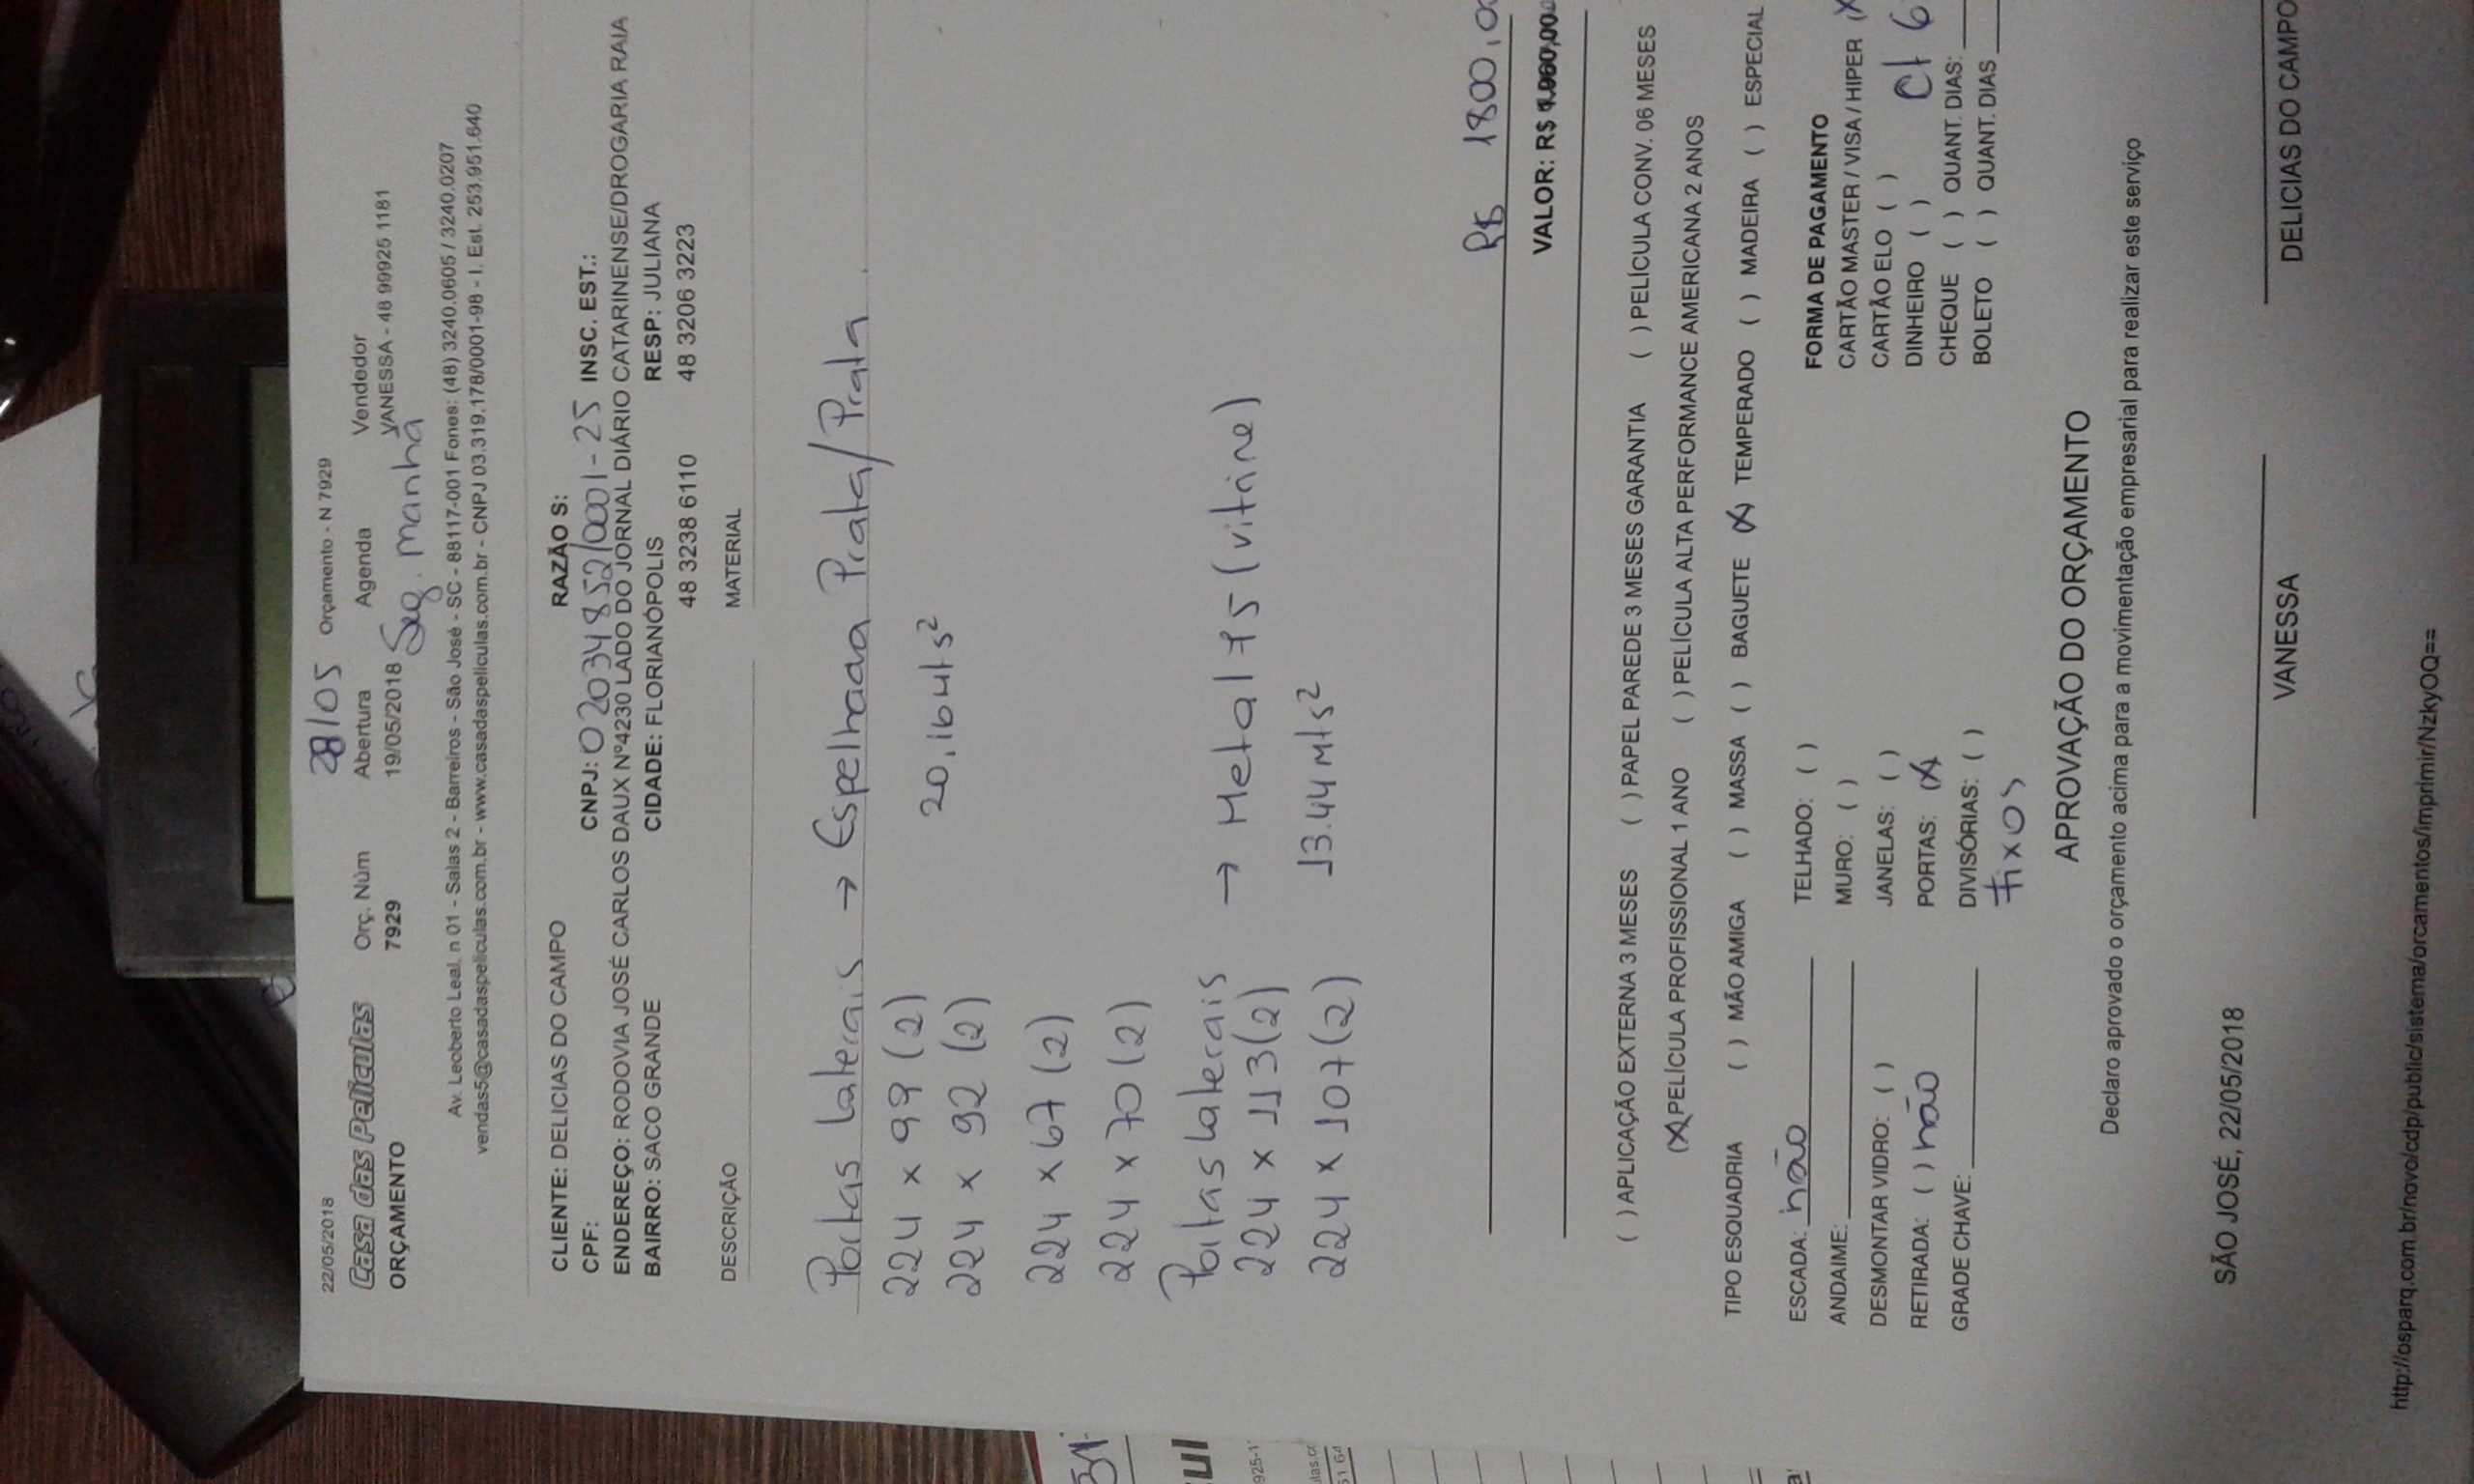 22/05/2018
28/05 Orçamento - N 7929
Casa das Películas
ORÇAMENTO
Orç. Núm
7929
Abertura
19/05/2018
Agenda
Seg. manhã
Vendedor
VANESSA - 48 99925 1181
Av. Leoberto Leal, n 01 - Salas 2 - Barreiros - São José - SC - 88117-001 Fones: (48) 3240.0605 / 3240.0207
vendas5@casadaspeliculas.com.br - www.casadaspeliculas.com.br - CNPJ 03.319.178/0001-98 - I. Est. 253.951.640
CLIENTE: DELICIAS DO CAMPO RAZÃO S:
CPF: CNPJ: 02034852/0001-25 INSC. EST.:
ENDEREÇO: RODOVIA JOSÉ CARLOS DAUX Nº4230 LADO DO JORNAL DIÁRIO CATARINENSE/DROGARIA RAIA
BAIRRO: SACO GRANDE CIDADE: FLORIANÓPOLIS RESP: JULIANA
48 3238 6110 48 3206 3223
DESCRIÇÃO MATERIAL
Portas laterais → Espelhada Prata/Prata
224 x 99 (2)
224 x 92 (2) 20,16Mts²
224 x 67 (2)
224 x 70 (2)
Portas laterais → Metal 75 (vitrine)
224 x 113 (2)
224 x 107 (2) 13.44 Mts²
R$ 1800,0
VALOR: R$ 1.960,00
( ) APLICAÇÃO EXTERNA 3 MESES ( ) PAPEL PAREDE 3 MESES GARANTIA ( ) PELÍCULA CONV. 06 MESES
(X) PELÍCULA PROFISSIONAL 1 ANO ( ) PELÍCULA ALTA PERFORMANCE AMERICANA 2 ANOS
TIPO ESQUADRIA ( ) MÃO AMIGA ( ) MASSA ( ) BAGUETE (X) TEMPERADO ( ) MADEIRA ( ) ESPECIAL
ESCADA: não
ANDAIME:
DESMONTAR VIDRO: ( )
RETIRADA: ( ) não
GRADE CHAVE:
TELHADO: ( )
MURO: ( )
JANELAS: ( )
PORTAS: (X)
DIVISÓRIAS: ( )
Fixos
FORMA DE PAGAMENTO
CARTÃO MASTER / VISA / HIPER (X
CARTÃO ELO ( )
DINHEIRO ( ) C/ 6
CHEQUE ( ) QUANT. DIAS:
BOLETO ( ) QUANT. DIAS
APROVAÇÃO DO ORÇAMENTO
Declaro aprovado o orçamento acima para a movimentação empresarial para realizar este serviço
SÃO JOSÉ, 22/05/2018
VANESSA
DELICIAS DO CAMPO
http://osparq.com.br/novo/cdp/public/sistema/orcamentos/imprimir/NzkyOQ==